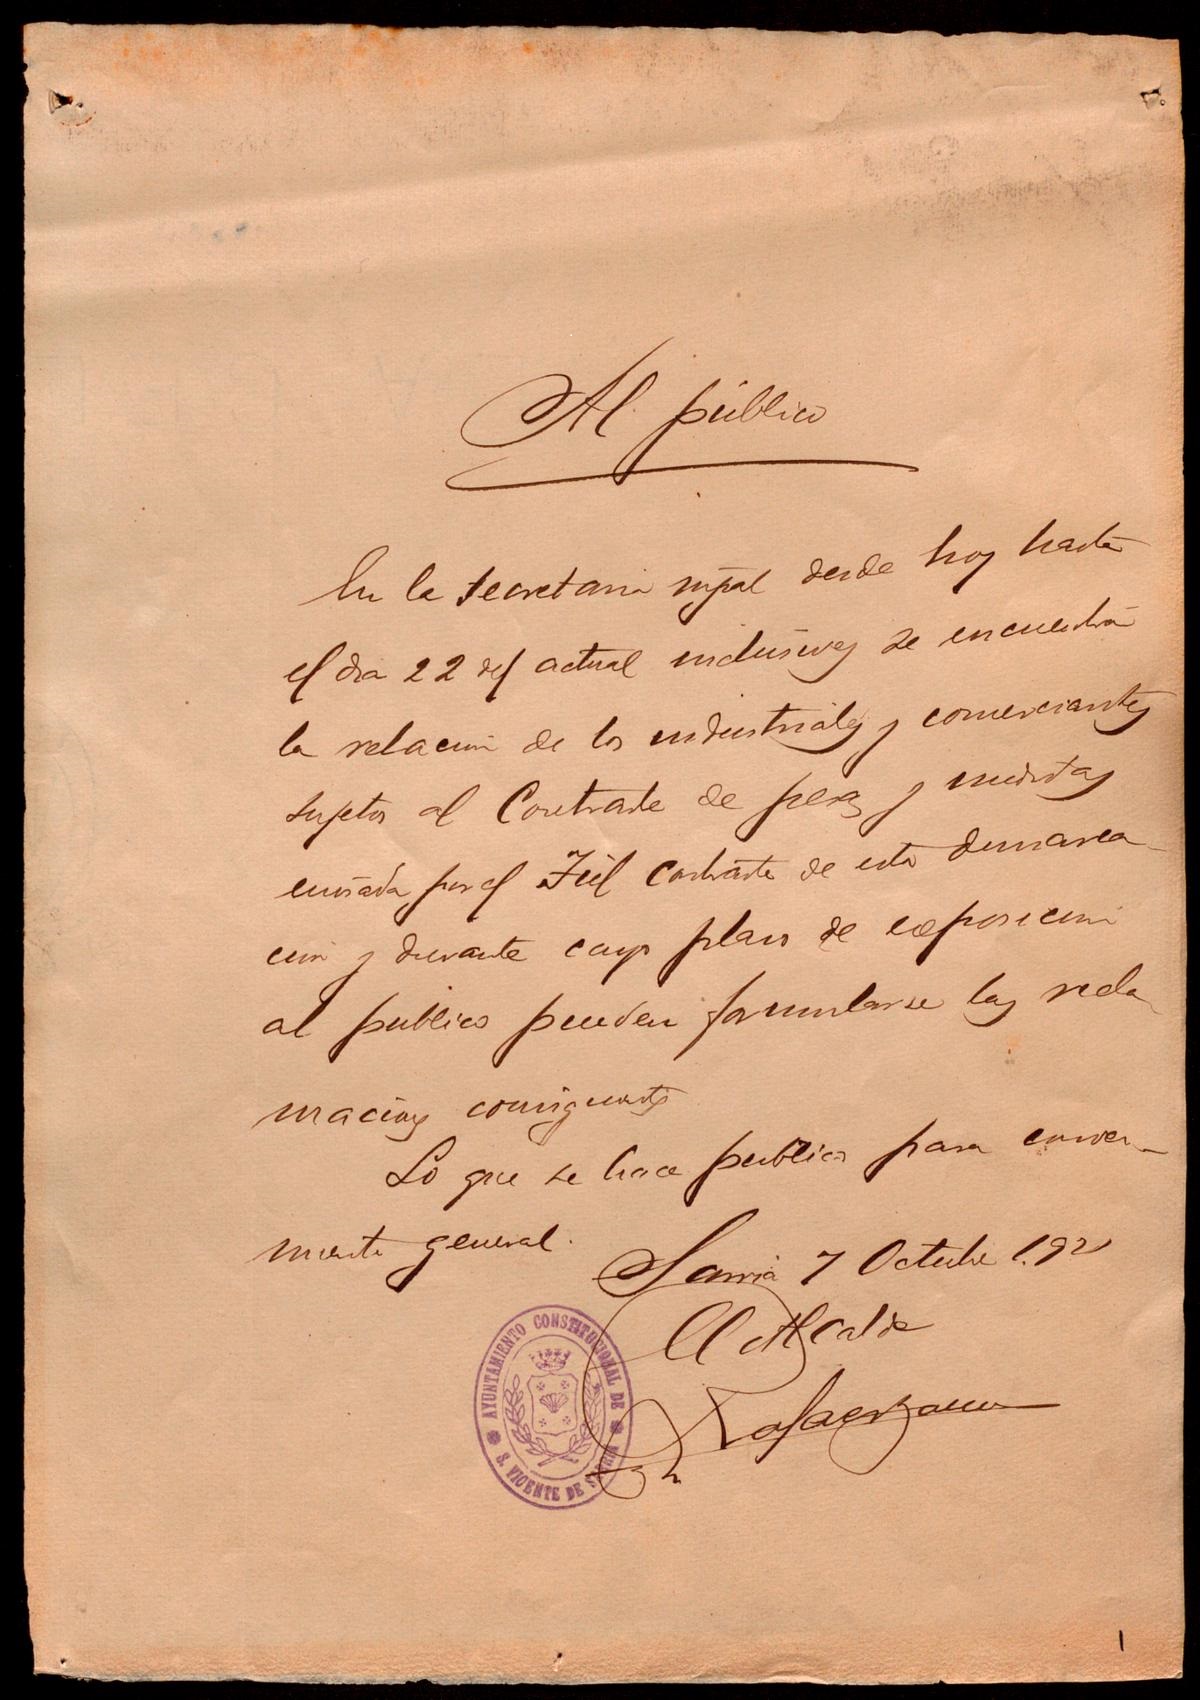 Al público
En la Secretaria mpal desde hoy hasta
el dia 22 del actual inclusives se encuentra
la relacion de los industriales y comerciantes
sujetos al Contraste de pesas y medidas
enviada por el Fiel Contraste de esta demarca-
cion y durante cuyo plazo de exposicion
al publico pueden formularse las recla-
maciones consiguientes
Lo que se hace publico para conoci-
miento general.
Sarriá 7 Octubre 192
El Alcalde
AYUNTAMIENTO CONSTITUCIONAL DE
S. VICENTE DE SARRIÁ
1